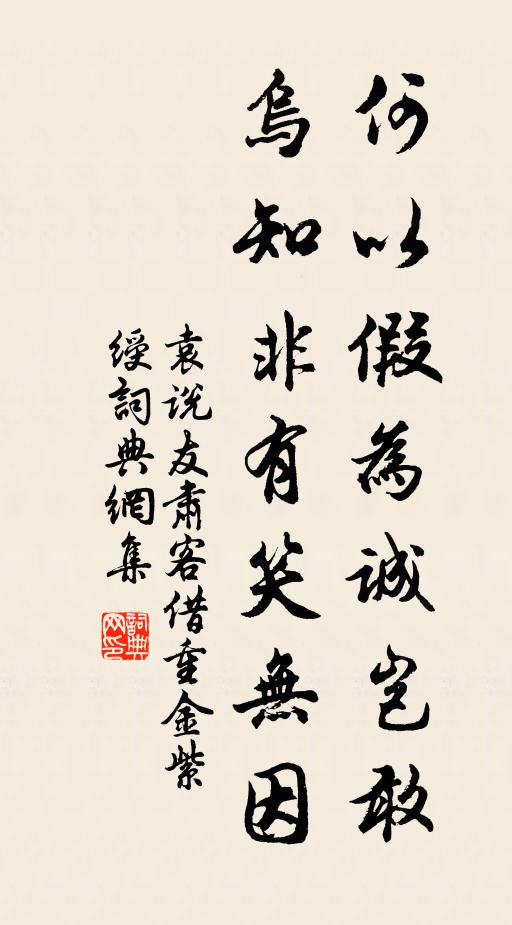 何以假為誠豈敢
烏知非有笑無因
袁说友肅客借重金紫
綬詞典網集
詞典
网印